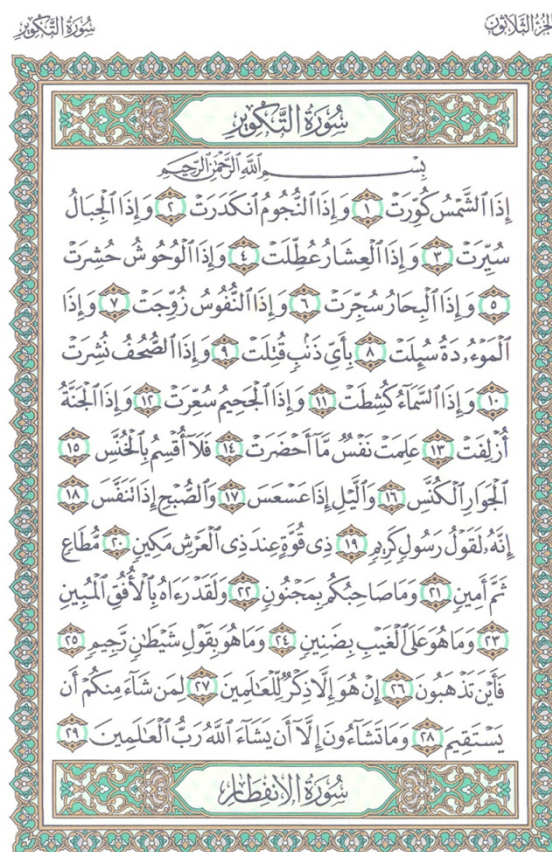 سُورَةُ التَّكْوِيرِ الجُزْءُ الثَّلَاثُونَ
سُورَةُ التَّكْوِيرِ
بِسْمِ اللَّهِ الرَّحْمَٰنِ الرَّحِيمِ
إِذَا ٱلشَّمْسُ كُوِّرَتْ ١ وَإِذَا ٱلنُّجُومُ ٱنكَدَرَتْ ٢ وَإِذَا ٱلْجِبَالُ
سُيِّرَتْ ٣ وَإِذَا ٱلْعِشَارُ عُطِّلَتْ ٤ وَإِذَا ٱلْوُحُوشُ حُشِرَتْ
٥ وَإِذَا ٱلْبِحَارُ سُجِّرَتْ ٦ وَإِذَا ٱلنُّفُوسُ زُوِّجَتْ ٧ وَإِذَا
ٱلْمَوْءُۥدَةُ سُئِلَتْ ٨ بِأَىِّ ذَنۢبٍ قُتِلَتْ ٩ وَإِذَا ٱلصُّحُفُ نُشِرَتْ
١٠ وَإِذَا ٱلسَّمَآءُ كُشِطَتْ ١١ وَإِذَا ٱلْجَحِيمُ سُعِّرَتْ ١٢ وَإِذَا ٱلْجَنَّةُ
أُزْلِفَتْ ١٣ عَلِمَتْ نَفْسٌ مَّآ أَحْضَرَتْ ١٤ فَلَآ أُقْسِمُ بِٱلْخُنَّسِ ١٥
ٱلْجَوَارِ ٱلْكُنَّسِ ١٦ وَٱلَّيْلِ إِذَا عَسْعَسَ ١٧ وَٱلصُّبْحِ إِذَا تَنَفَّسَ ١٨
إِنَّهُۥ لَقَوْلُ رَسُولٍ كَرِيمٍ ١٩ ذِى قُوَّةٍ عِندَ ذِى ٱلْعَرْشِ مَكِينٍ ٢٠ مُّطَاعٍ
ثَمَّ أَمِينٍ ٢١ وَمَا صَاحِبُكُم بِمَجْنُونٍ ٢٢ وَلَقَدْ رَءَاهُ بِٱلْأُفُقِ ٱلْمُبِينِ
٢٣ وَمَا هُوَ عَلَى ٱلْغَيْبِ بِضَنِينٍ ٢٤ وَمَا هُوَ بِقَوْلِ شَيْطَٰنٍ رَّجِيمٍ ٢٥
فَأَيْنَ تَذْهَبُونَ ٢٦ إِنْ هُوَ إِلَّا ذِكْرٌ لِّلْعَٰلَمِينَ ٢٧ لِمَن شَآءَ مِنكُمْ أَن
يَسْتَقِيمَ ٢٨ وَمَا تَشَآءُونَ إِلَّآ أَن يَشَآءَ ٱللَّهُ رَبُّ ٱلْعَٰلَمِينَ ٢٩
سُورَةُ الِانفِطَارِ